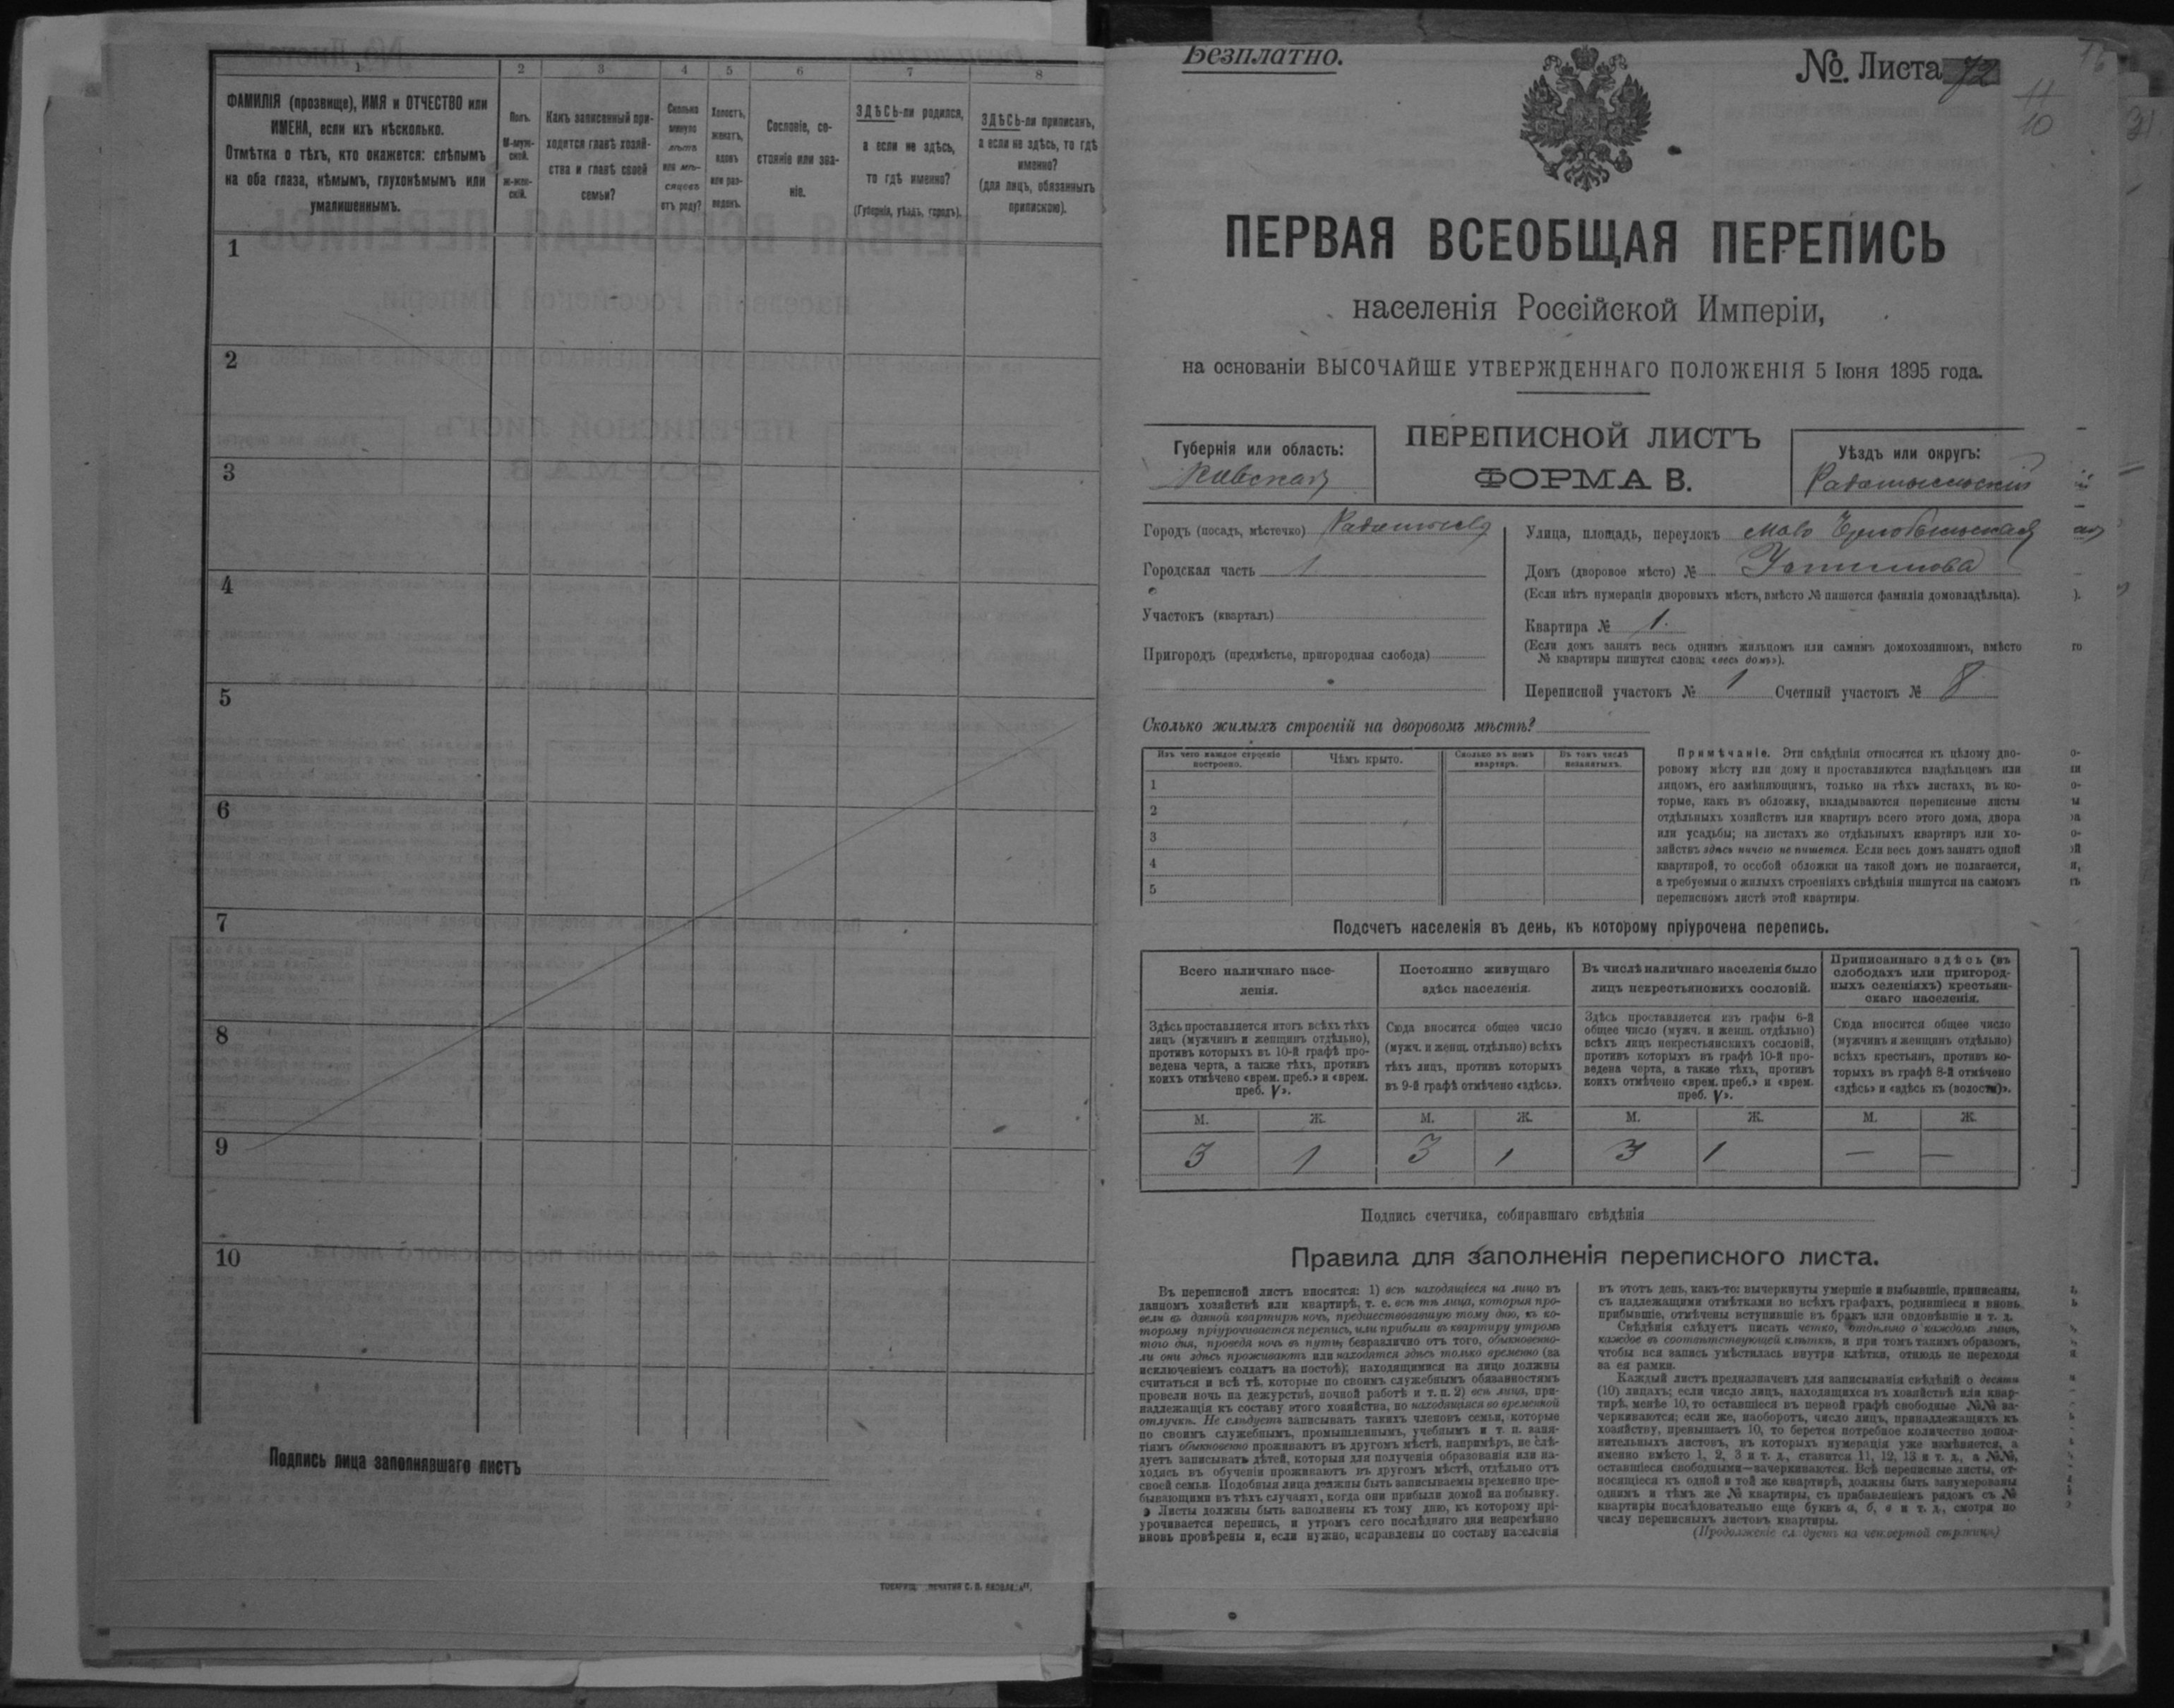 1 2 3 4 5 6 7 8
ФАМИЛІЯ (прозвище), ИМЯ и ОТЧЕСТВО или
ИМЕНА, если ихъ нѣсколько.
Отмѣтка о тѣхъ, кто окажется: слѣпымъ
на оба глаза, нѣмымъ, глухонѣмымъ или
умалишеннымъ.
Полъ.
М-муж-
ской.
Ж-жен-
скій.
Какъ записанный при-
ходится главѣ хозяй-
ства и главѣ своей
семьи?
Сколько
минуло
лѣтъ
или мѣ-
сяцевъ
отъ роду?
Холостъ,
женатъ,
вдовъ
или раз-
веденъ.
Сословіе, со-
стояніе или зва-
ніе.
ЗДѢСЬ-ли родился,
а если не здѣсь,
то гдѣ именно?
(Губернія, уѣздъ, городъ).
ЗДѢСЬ-ли приписанъ,
а если не здѣсь, то гдѣ
именно?
(для лицъ, обязанныхъ
припискою).
1
2
3
4
5
6
7
8
9
10
Подпись лица заполнявшаго листъ
Безплатно.
№. Листа 72
11
10
31
ПЕРВАЯ ВСЕОБЩАЯ ПЕРЕПИСЬ
населенія Россійской Имперіи,
на основаніи ВЫСОЧАЙШЕ УТВЕРЖДЕННАГО ПОЛОЖЕНІЯ 5 Іюня 1895 года.
Губернія или область:
Кіевская
ПЕРЕПИСНОЙ ЛИСТЪ
ФОРМА В.
Уѣздъ или округъ:
Радомысльскій
Городъ (посадъ, мѣстечко) Радомысль
Городская часть 1
Участокъ (кварталъ)
Пригородъ (предмѣстье, пригородная слобода)
Улица, площадь, переулокъ Мало Чернобыльская
Домъ (дворовое мѣсто) №
(Если нѣтъ нумераціи дворовыхъ мѣстъ, вмѣсто № пишется фамилія домовладѣльца).
Квартира № 1.
(Если домъ занятъ весь однимъ жильцомъ или самимъ домохозяиномъ, вмѣсто
№ квартиры пишутся слова: «весь домъ»).
Переписной участокъ № 1 Счетный участокъ № 8
Сколько жилыхъ строеній на дворовомъ мѣстѣ?
Изъ чего каждое строеніе
построено.
Чѣмъ крыто.
Сколько въ немъ
квартиръ.
Въ томъ числѣ
незанятыхъ.
1
2
3
4
5
Примѣчаніе. Эти свѣдѣнія относятся къ цѣлому дво-
ровому мѣсту или дому и проставляются владѣльцемъ или
лицомъ, его замѣняющимъ, только на тѣхъ листахъ, въ ко-
торые, какъ въ обложку, вкладываются переписные листы
отдѣльныхъ хозяйствъ или квартиръ всего этого дома, двора
или усадьбы; на листахъ же отдѣльныхъ квартиръ или хо-
зяйствъ здѣсь ничего не пишется. Если весь домъ занятъ одной
квартирой, то особой обложки на такой домъ не полагается,
а требуемыя о жилыхъ строеніяхъ свѣдѣнія пишутся на самомъ
переписномъ листѣ этой квартиры.
Подсчетъ населенія въ день, къ которому пріурочена перепись.
Всего наличнаго насе-
ленія.
Постоянно живущаго
здѣсь населенія.
Въ числѣ наличнаго населенія было
лицъ некрестьянскихъ сословій.
Приписаннаго здѣсь (въ
слободахъ или пригород-
ныхъ селеніяхъ) крестьян-
скаго населенія.
Здѣсь проставляется итогъ всѣхъ тѣхъ
лицъ (мужчинъ и женщинъ отдѣльно),
противъ которыхъ въ 10-й графѣ про-
ведена черта, а также тѣхъ, противъ
коихъ отмѣчено «врем. преб.» и «врем.
преб. V».
Сюда вносится общее число
(мужч. и женщ. отдѣльно) всѣхъ
тѣхъ лицъ, противъ которыхъ
въ 9-й графѣ отмѣчено «здѣсь».
Здѣсь проставляется изъ графы 6-й
общее число (мужч. и женщ. отдѣльно)
всѣхъ лицъ некрестьянскихъ сословій,
противъ которыхъ въ графѣ 10-й про-
ведена черта, а также тѣхъ, противъ
коихъ отмѣчено «врем. преб.» и «врем.
преб. V».
Сюда вносится общее число
(мужчинъ и женщинъ отдѣльно)
всѣхъ крестьянъ, противъ ко-
торыхъ въ графѣ 8-й отмѣчено
«здѣсь» и «здѣсь къ (волости)».
М. Ж. М. Ж. М. Ж. М. Ж.
3 1 3 1 3 1 — —
Подпись счетчика, собиравшаго свѣдѣнія
Правила для заполненія переписного листа.
Въ переписной листъ вносятся: 1) всѣ находящіеся на лицо въ
данномъ хозяйствѣ или квартирѣ, т. е. всѣ тѣ лица, которыя про-
вели въ данной квартирѣ ночь, предшествовавшую тому дню, къ ко-
торому пріурочивается перепись, или прибыли въ квартиру утромъ
того дня, проведя ночь въ пути, безразлично отъ того, обыкновенно-
ли они здѣсь проживаютъ или находятся здѣсь только временно (за
исключеніемъ солдатъ на постоѣ); находящимися на лицо должны
считаться и всѣ тѣ, которые по своимъ служебнымъ обязанностямъ
провели ночь на дежурствѣ, ночной работѣ и т. п. 2) всѣ лица, при-
надлежащія къ составу этого хозяйства, но находящіяся во временной
отлучкѣ. Не слѣдуетъ записывать такихъ членовъ семьи, которые
по своимъ служебнымъ, промышленнымъ, учебнымъ и т. п. заня-
тіямъ обыкновенно проживаютъ въ другомъ мѣстѣ, напримѣръ, не слѣ-
дуетъ записывать дѣтей, которыя для полученія образованія или на-
ходясь въ обученіи проживаютъ въ другомъ мѣстѣ, отдѣльно отъ
своей семьи. Подобныя лица должны быть записываемы временно пре-
бывающими въ тѣхъ случаяхъ, когда они прибыли домой на побывку.
Листы должны быть заполнены къ тому дню, къ которому прі-
урочивается перепись, и утромъ сего послѣдняго дня непремѣнно
вновь провѣрены и, если нужно, исправлены по составу населенія
въ этотъ день, какъ-то: вычеркнуты умершіе и выбывшіе, приписаны,
съ надлежащими отмѣтками во всѣхъ графахъ, родившіеся и вновь
прибывшіе, отмѣчены вступившіе въ бракъ или овдовѣвшіе и т. д.
Свѣдѣнія слѣдуетъ писать четко, отдѣльно о каждомъ лицѣ,
каждое въ соотвѣтствующей клѣткѣ, и при томъ такимъ образомъ,
чтобы вся запись умѣстилась внутри клѣтки, отнюдь не переходя
за ея рамки.
Каждый листъ предназначенъ для записыванія свѣдѣній о десяти
(10) лицахъ; если число лицъ, находящихся въ хозяйствѣ или квар-
тирѣ, менѣе 10, то оставшіеся въ первой графѣ свободные №№ за-
черкиваются; если же, наоборотъ, число лицъ, принадлежащихъ къ
хозяйству, превышаетъ 10, то берется потребное количество допол-
нительныхъ листовъ, въ которыхъ нумерація уже измѣняется, а
именно вмѣсто 1, 2, 3 и т. д., ставится 11, 12, 13 и т. д., а №№,
оставшіеся свободными—зачеркиваются. Всѣ переписные листы, от-
носящіеся къ одной и той же квартирѣ, должны быть занумерованы
однимъ и тѣмъ же № квартиры, съ прибавленіемъ рядомъ съ №
квартиры послѣдовательно еще буквъ а, б, в и т. д., смотря по
числу переписныхъ листовъ квартиры.
(Продолженіе слѣдуетъ на четвертой страницѣ)